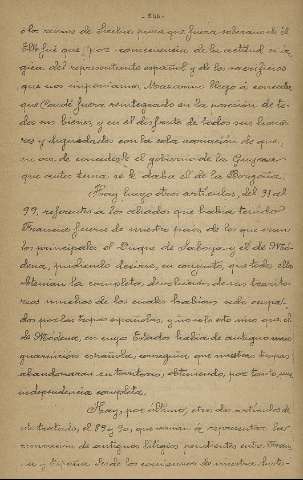 á los reinos de Sicilia para que fuera soberano de él
Ello fué que, por consecuencia de la actitud enér-
gica del representante español y de los sacrificios
que nos imponíamos, Mazarino llegó á conceder
que Condé fuera reintegrado en la posesión de to-
dos sus bienes, y en el disfrute de todos sus hono-
res y dignidades con la sola variación de que,
en vez de concederle el gobierno de la Guyena
que antes tenía se le daba el de la Borgoña.
Hay luego otros artículos, del 91 al
99, referentes á los aliados que había tenido
Francia fuera de nuestro país, de los que eran
los principales el Duque de Saboya y el de Mó-
dena, pudiendo decirse, en conjunto, que todos ellos
obtenían la completa devolución de sus territo-
rios muchos de los cuales habían sido ocupa-
dos por las tropas españolas, y no solo esto sino que el
de Módena, en cuyo Estado había de antiguo una
guarnición española, conseguía que nuestras tropas
abandonaran su territorio, obteniendo, por tanto, una
independencia completa.
Hay, por último, otros dos artículos de
este tratado, el 89 y 90, que venían á representar la
terminación de antiguos litigios pendientes entre Fran-
cia y España. Desde los comienzos de nuestra